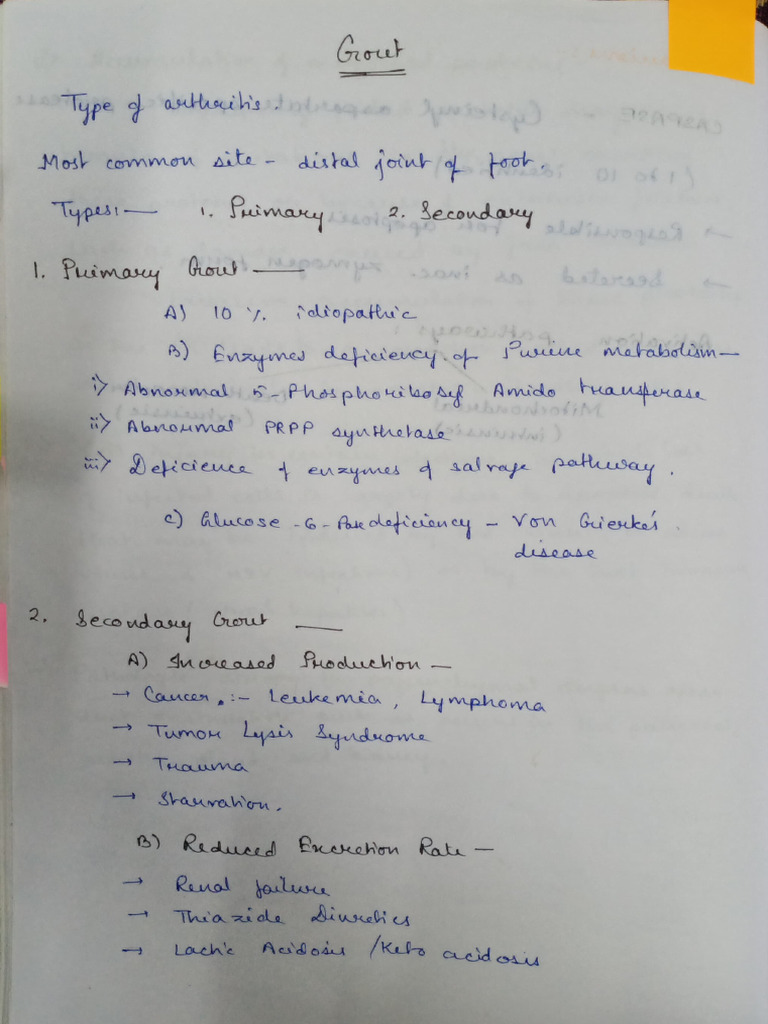 Gout
Type of arthritis.
Most common site - distal joint of foot.
Types:- 1. Primary 2. Secondary
1. Primary Gout —
A) 10 % idiopathic
B) Enzymes deficiency of Purine metabolism-
i) Abnormal 5-Phosphoribosyl Amido transferase
ii) Abnormal PRPP synthetase
iii) Deficience of enzymes of salvage pathway.
C) Glucose-6-Pase deficiency - Von Gierke's
disease
2. Secondary Gout —
A) Increased Production -
→ Cancer :- Leukemia, Lymphoma
→ Tumor Lysis Syndrome
→ Trauma
→ Starvation.
B) Reduced Excretion Rate -
→ Renal failure
→ Thiazide Diuretics
→ Lactic Acidosis /Keto acidosis